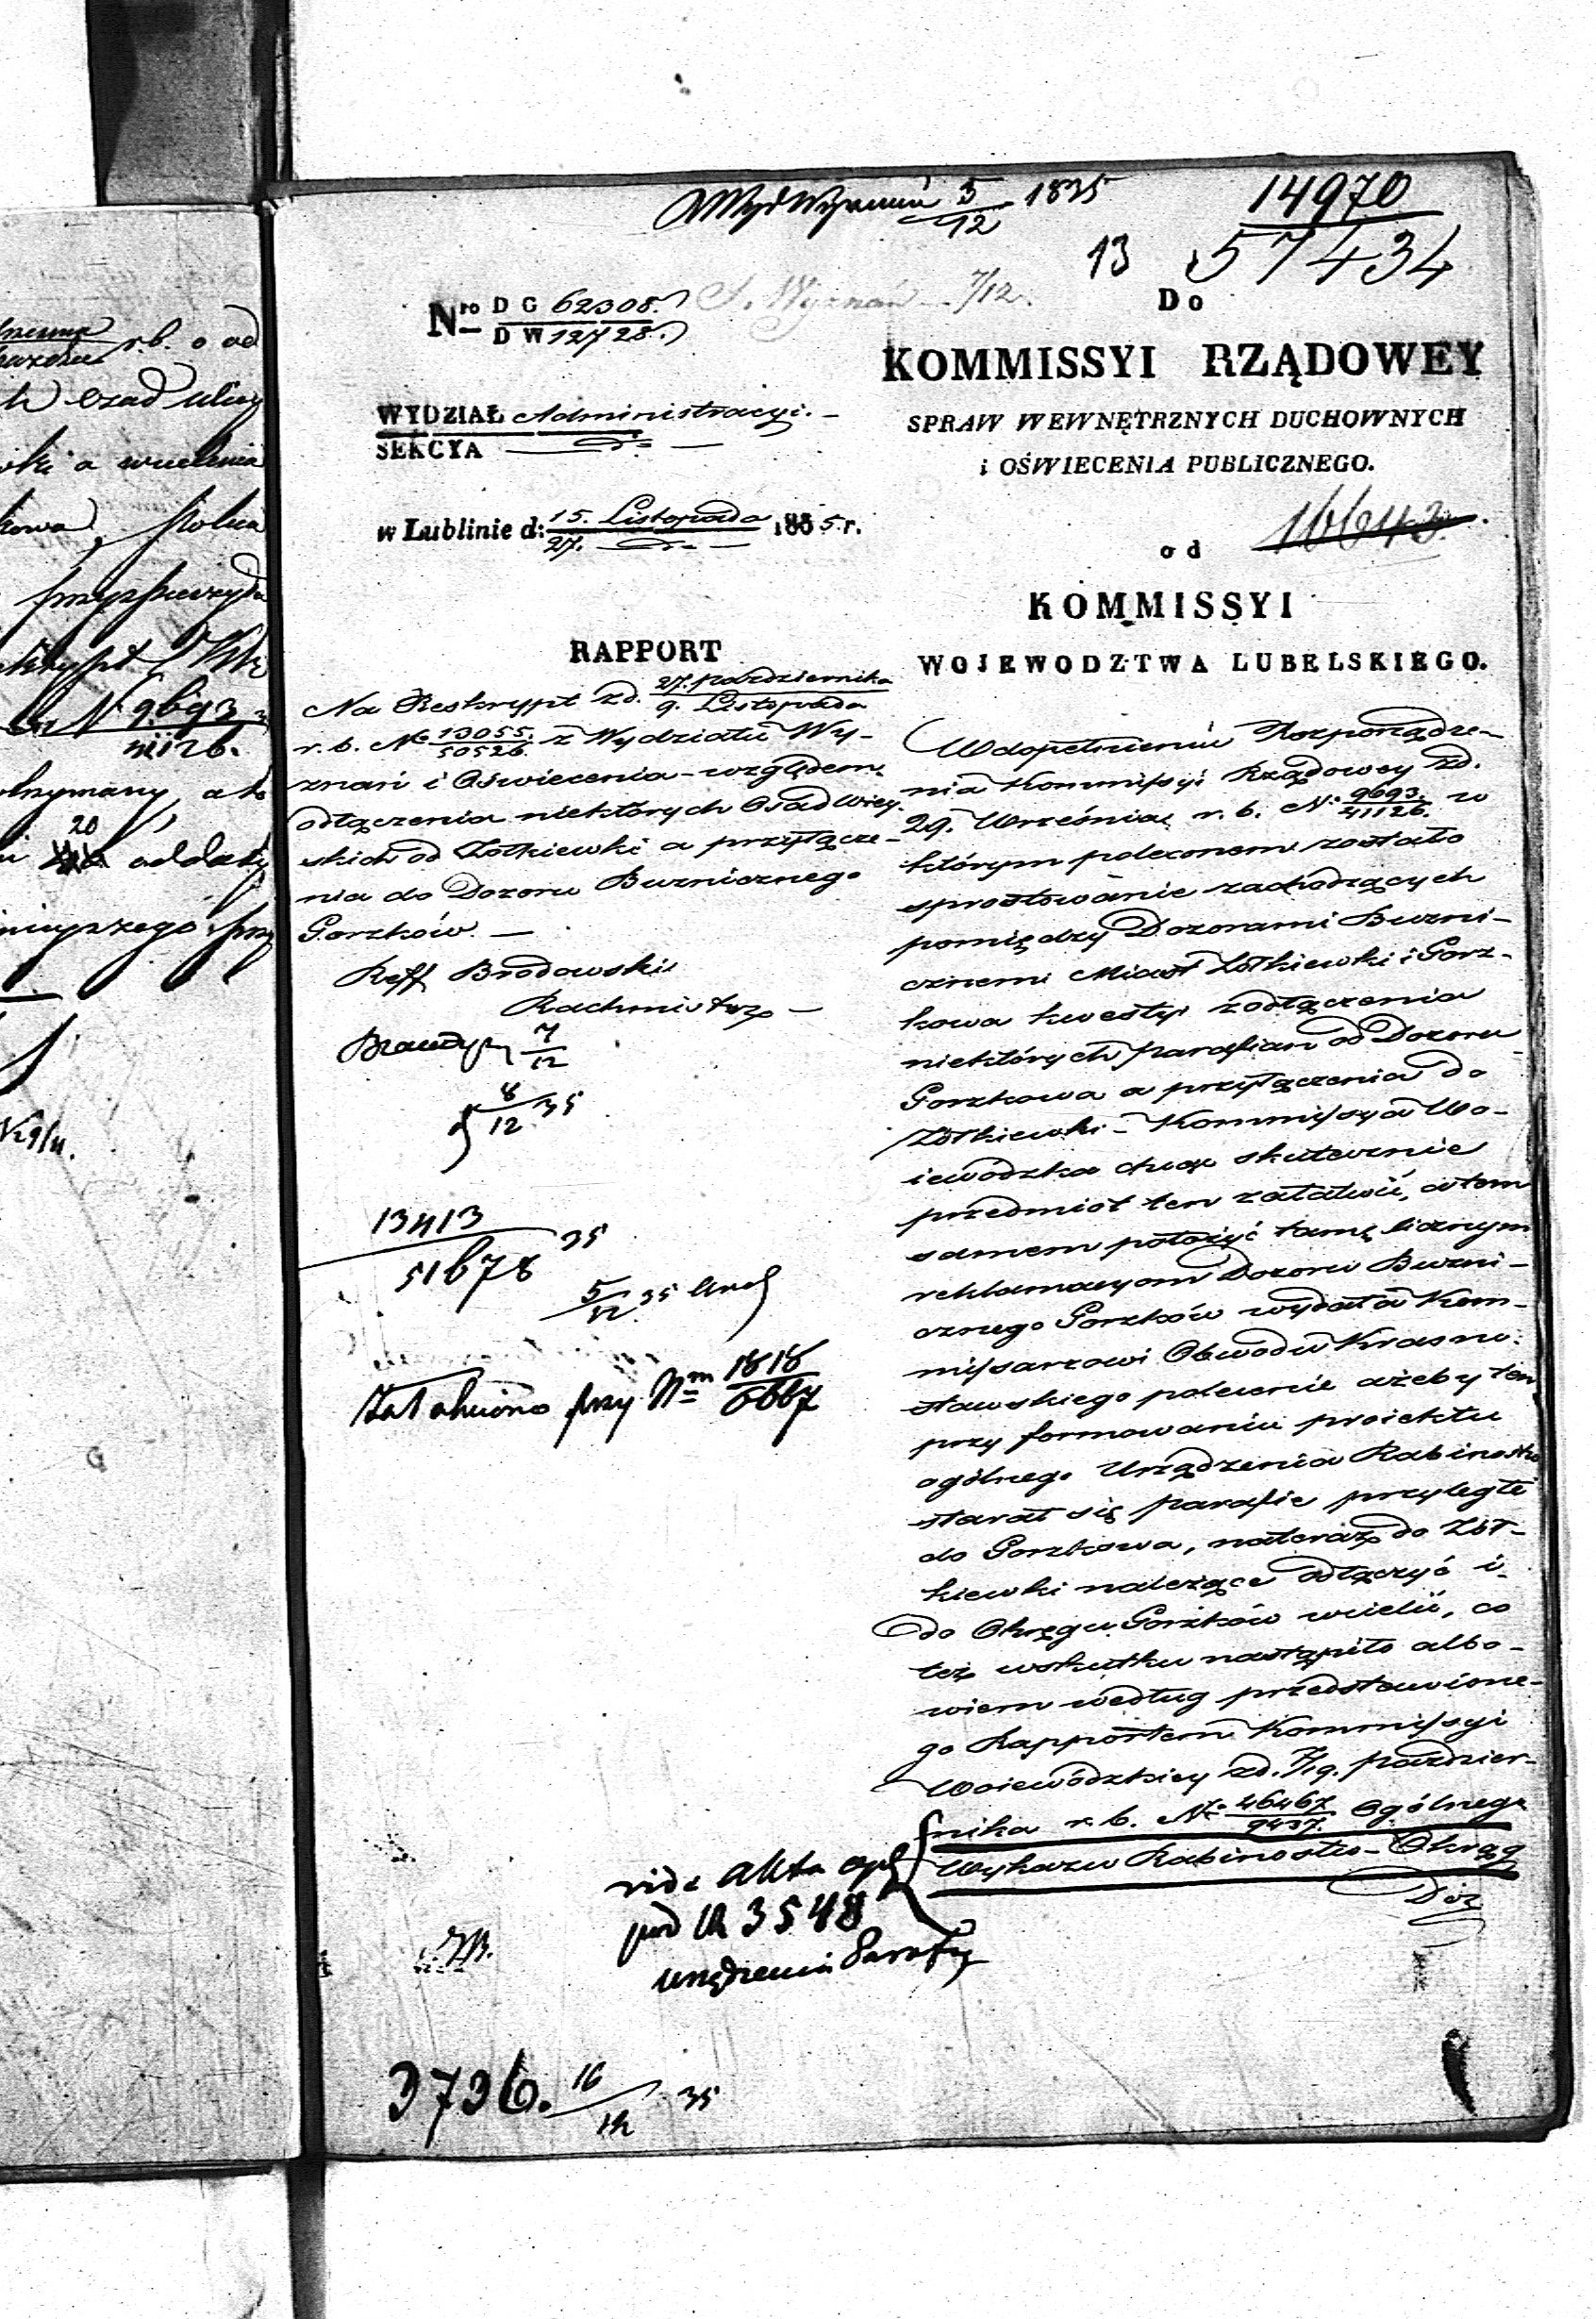 rb. o od
a
owa
N 9693
41126.
20
oddały
5/12 1835
14970
57434
13
Nro D G 62308.
D W 12728.
7/12.
Do
KOMMISSYI RZĄDOWEY
SPRAW WEWNĘTRZNYCH DUCHOWNYCH
i OŚWIECENIA PUBLICZNEGO.
16643.
od
KOMMISSYI
WOJEWODZTWA LUBELSKIEGO.
WYDZIAŁ Administracyi. –
SEKCYA
w Lublinie d: 15. Listopada / 27. 1835 r.
RAPPORT
Na Reskrypt z d. 27. Października / 9. Listopada
r. b. No 13055. / 50526. z Wydziału Wy-
znań i Oświecenia – względem
odłączenia niektórych Osad Wiey-
skich od Żółkiewki a przyłącze-
nia do Dozoru Buzniczego
Gorzków. —
Reff Brodowski
Rachmistrz —
7/12
8/12 35
13413
51678 35
5/12 35
Załatwiono przy Nrm 1818
6667
W dopełnieniu Rozporządze-
nia Kommissyi Rządowey z d.
29. Września r. b. No 9693. / 41126. w
którym poleconem zostało
sprostowanie zachodzących
pomiędzy Dozorami Buzni-
cznemi Miast Żółkiewki i Gorz-
kowa kwestyi z odłączenia
niektórych parafian od Dozoru
Gorzkowa a przyłączenia do
Żółkiewki – Kommissya Wo-
iewódzka chcąc skutecznie
przedmiot ten załatwić, a tem
samem położyć tamę licznym
reklamacyom Dozoru Buzni-
cznego Gorzków wydała Kom-
missarzowi Obwodu Krasno-
stawskiego polecenie ażeby ten
przy formowaniu proiektu
ogólnego Urządzenia Rabinostw
starał się parafie przyległe
do Gorzkowa, nateraz do Żół-
kiewki należące odłączyć i
do Okręgu Gorzków wcielić, co
też w skutku nastąpiło albo-
wiem według przedstawione-
go Rapportem Kommissyi
Woiewódzkiey z d. 7/19. Paździer-
nika r. b. No 46467 / 9437. Ogólnego
Wykazu Rabinostw – Okrąg
Doz
vide akta
pod N 3548
urządzenia Parafij
3736. 16/12 35